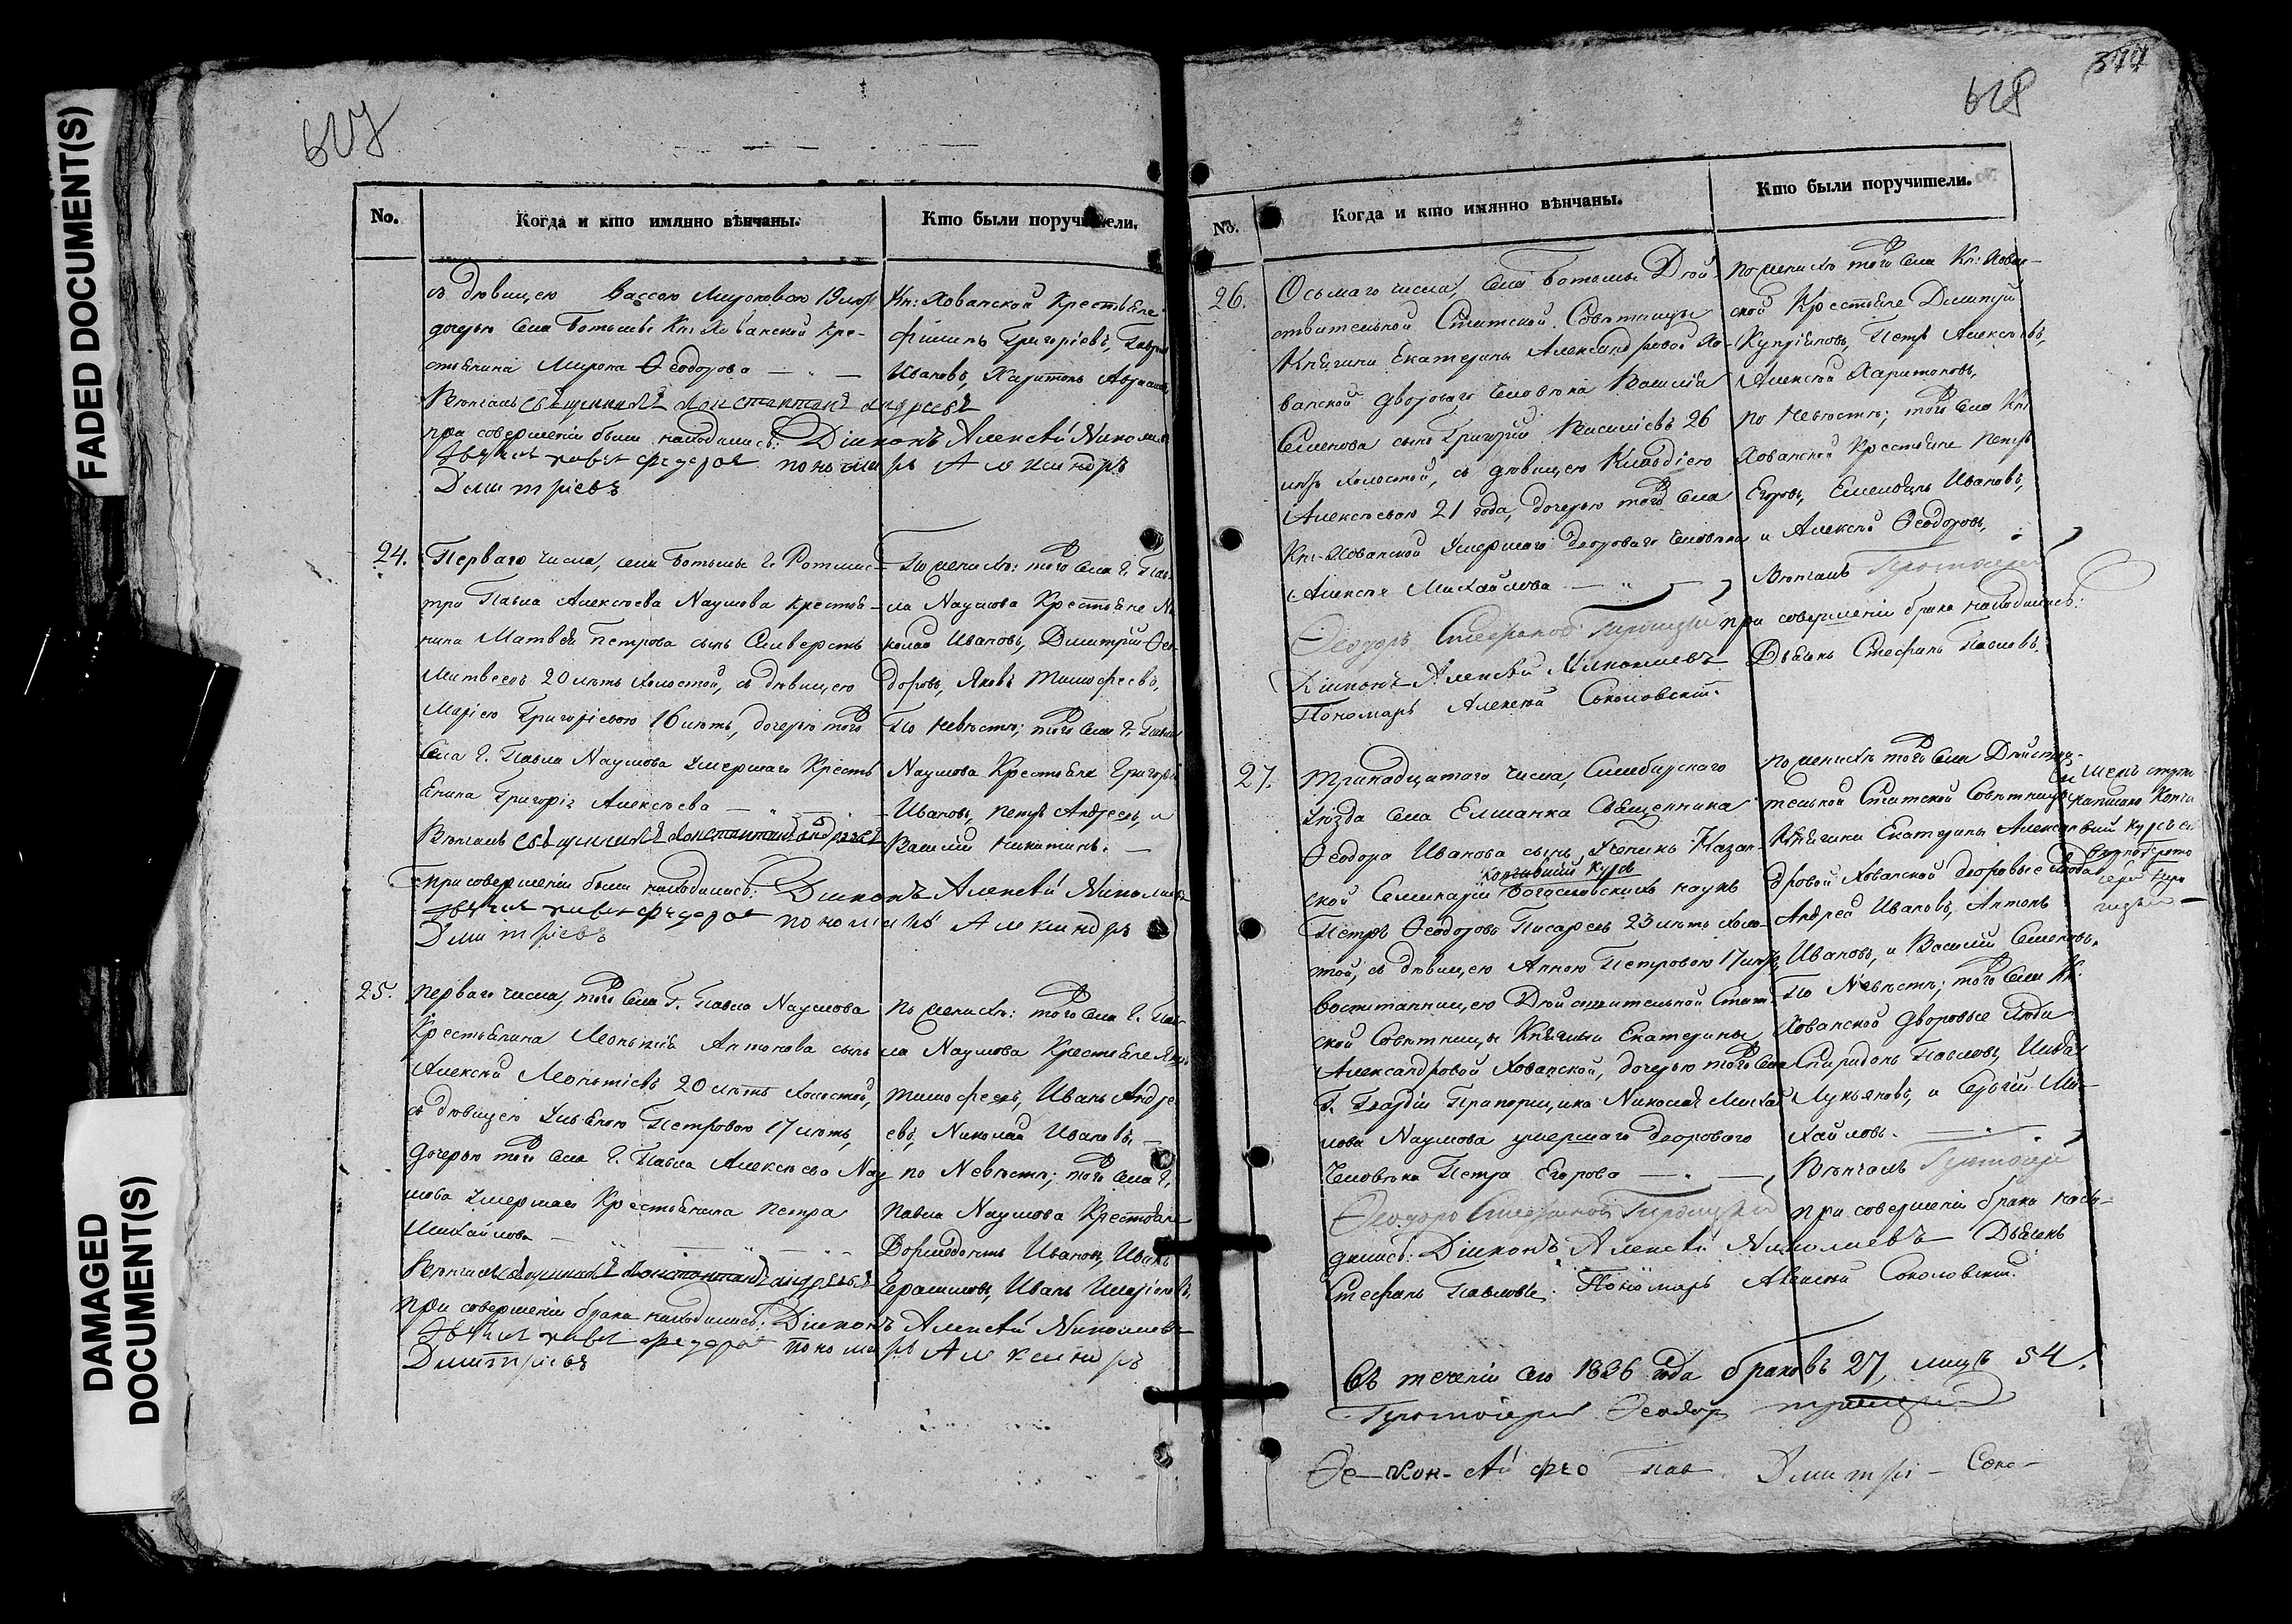 FADED DOCUMENT(S)
DAMAGED
DOCUMENT(S)
627
No.
Когда и кто имянно вѣнчаны.
Кто были поручители.
съ дѣвицею Вассою Мироновою 19 лѣтъ
дочерью села Ботьмы Кн: Хованской кре-
стьянина Мирона Ѳеодорова
Вѣнчалъ священникъ Константинъ Андреевъ
при совершеніи были находились: Діаконъ Алексѣй Николаевъ
пономарь Александръ
Дмитріевъ
Кн: Хованской Крестьяне
Филипъ Григорьевъ,
Ивановъ, Харитонъ
24.
Перваго числа, села Ботьмы Г. Ротмис-
тра Павла Алексѣева Наумова крестья-
нина Матвея Петрова сынъ Сильверстъ
Матвеевъ 20 лѣтъ холостой, съ дѣвицею
Маріею Григорьевою 16 лѣтъ, дочерью того
села Г. Павла Наумова умершаго Кресть
янина Григорія Алексѣева
Вѣнчалъ священникъ Константинъ Андреевъ
При совершеніи были находились: Діаконъ Алексѣй Николаевъ
пономарь Александръ
Дмитріевъ
По женихѣ: того села Г. Пав-
ла Наумова Крестьяне Ни
колай Ивановъ, Дмитрій Ѳео-
доровъ, Яковъ Тимофеевъ,
По невѣстѣ; того села Г. Павла
Наумова Крестьяне Григорій
Ивановъ, Петръ Андреевъ, и
Василій Никитинъ.
25.
перваго числа, того села Г. Павла Наумова
Крестьянина Леонтія Антонова сынъ
Алексей Леонтіевъ 20 лѣтъ холостой,
съ дѣвицею Ульяною Петровою 17 лѣтъ,
дочерью того села Г. Павла Алексѣева Нау
мова умершаго Крестьянина Петра
Михайлова
Вѣнчалъ священникъ Константинъ Андреевъ
при совершеніи брака находились: Діаконъ Алексѣй Николаевъ
пономарь Александръ
Дмитріевъ
По женихѣ: того села Г. Пав-
ла Наумова Крестьяне Яковъ
Тимофеевъ, Иванъ Андре
евъ, Николай Ивановъ,
по Невѣстѣ; того села Г.
Павла Наумова Крестьяне
Ивановъ, Иванъ
Герасимовъ, Иванъ
377
628
No.
Когда и кто имянно вѣнчаны.
Кто были поручители.
26.
Осьмаго числа, села Ботьмы Дѣй-
ствительной Статской Совѣтницы
Княгини Екатерины Александровой Хо-
ванской двороваго человѣка Василія
Семенова сынъ Григорій Васильевъ 26
лѣтъ холостой, съ дѣвицею Клавдіею
Алексѣевою 21 года, дочерью того села
Кн: Хованской умершаго двороваго человѣка
Алексѣя Михайлова
Ѳеодоръ Стефановъ Троицкій при совершеніи брака находились:
Діаконъ Алексѣй Николаевъ Дьячекъ Стефанъ Павловъ.
Пономарь Алексѣй Соколовскій.
по женихѣ того села Кн: Хован-
ской Крестьяне Дмитрій
Купріяновъ, Петръ Алексѣевъ,
Алексѣй Харитоновъ,
по Невѣстѣ; того села Кн:
Хованской Крестьяне Петръ
Егоровъ, Емельянъ Ивановъ,
и Алексѣй Ѳеодоровъ,
Вѣнчалъ Протоіерей
27.
Тринадцатаго числа, Симбирскаго
уѣзда села Елшанка Священника
Ѳеодора Иванова сынъ, Ученикъ Казан-
ской Семинаріи Богословскихъ наукъ
кончившій курсъ
Петръ Ѳеодоровъ Писаревъ 23 лѣтъ холо-
стой, съ дѣвицею Анною Петровою 17 лѣтъ,
воспитанницею Дѣйствительной Стат-
ской Совѣтницы Княгини Екатерины
Александровой Хованской, дочерью того села
Г. Гвардіи Прапорщика Николая Михай
лова Наумова умершаго двороваго
Человѣка Петра Егорова
Ѳеодоръ Стефановъ Троицкій при совершеніи брака нахо-
дились: Діаконъ Алексѣй Николаевъ Дьячекъ
Стефанъ Павловъ. Пономарь Алексѣй Соколовскій.
по женихѣ того села Дѣйстви-
тельной Статской Совѣтницы
Княгини Екатерины Алексан-
дровой Хованской дворовые люди
Андрей Ивановъ, Антонъ
Ивановъ, и Василій Семеновъ.
По Невѣстѣ; того села Кн.
Хованской дворовые люди
Спиридонъ Павловъ, Иванъ
Лукьяновъ, и Сергѣй Ми-
хайловъ.
Вѣнчалъ Протоіерей
Въ теченіи сего 1836 года браковъ 27, лицъ 54.
Протоіерей Ѳеодоръ Троицкій